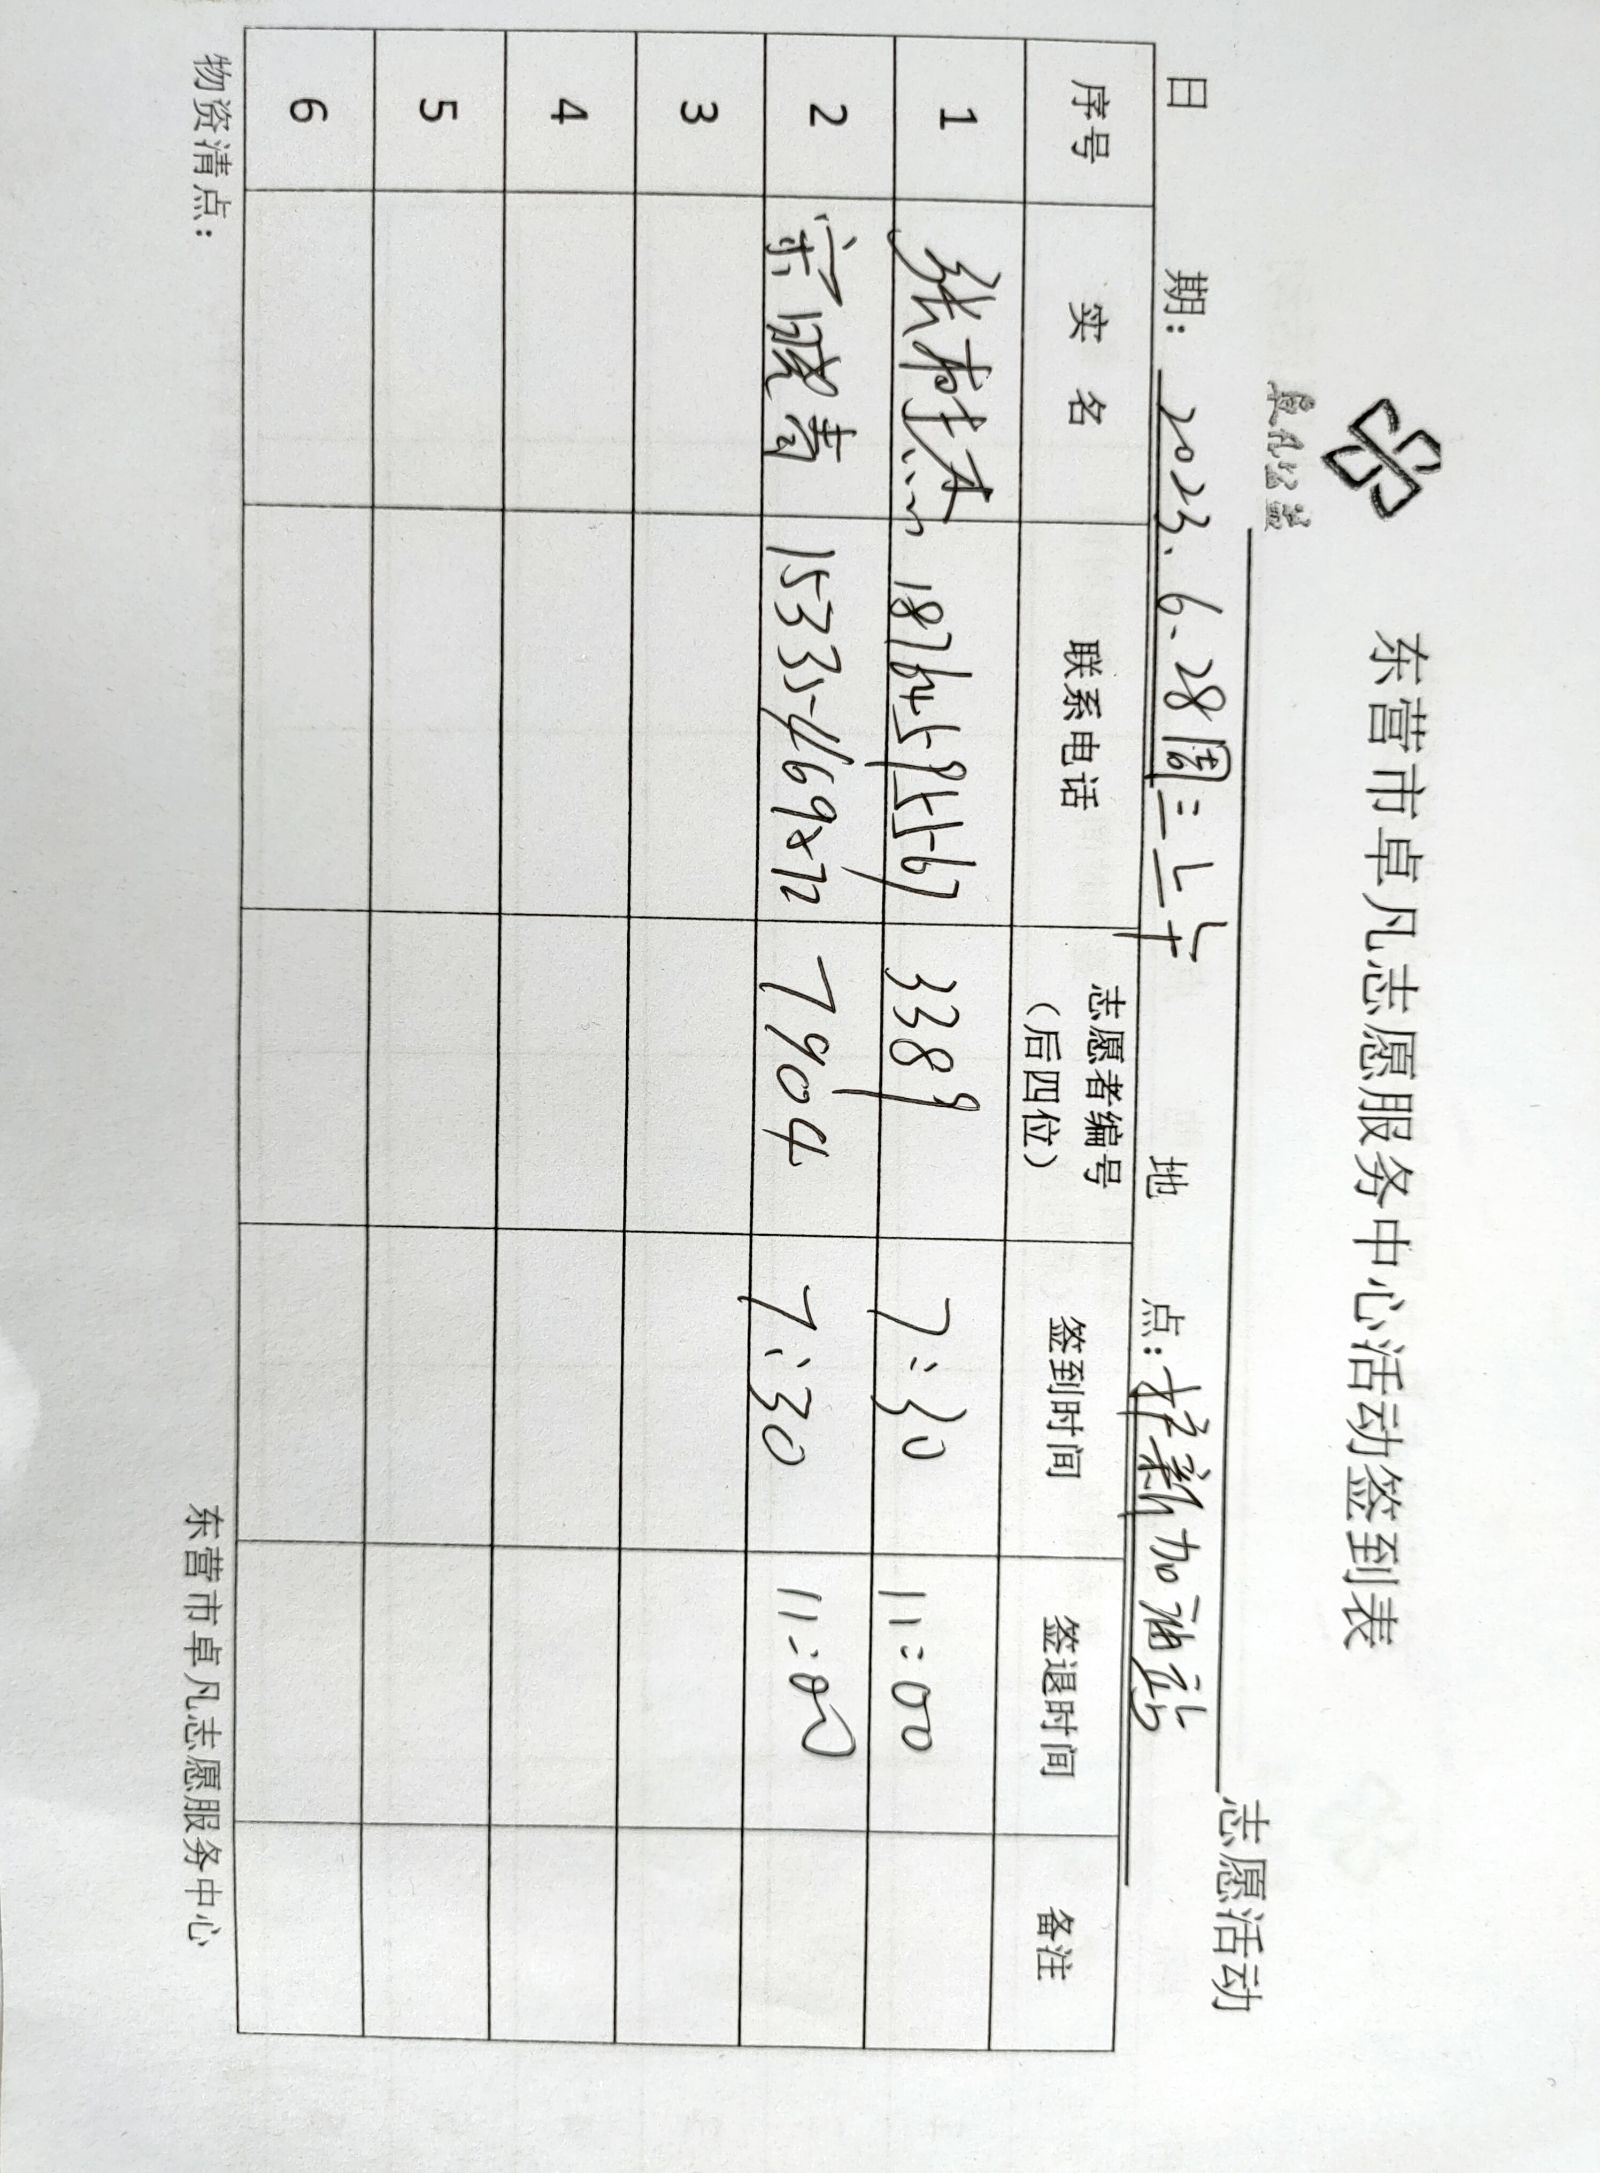 东营市卓凡志愿服务中心活动签到表
卓凡公益
志愿活动
日 期: 2023.6.28周三上午 地 点: 加油站
序号 实 名 联系电话 志愿者编号（后四位） 签到时间 签退时间 备注
1 张树杰 3389 7:30 11:00
2 宗晓青 7904 7:30 11:00
3
4
5
6
物资清点: 东营市卓凡志愿服务中心